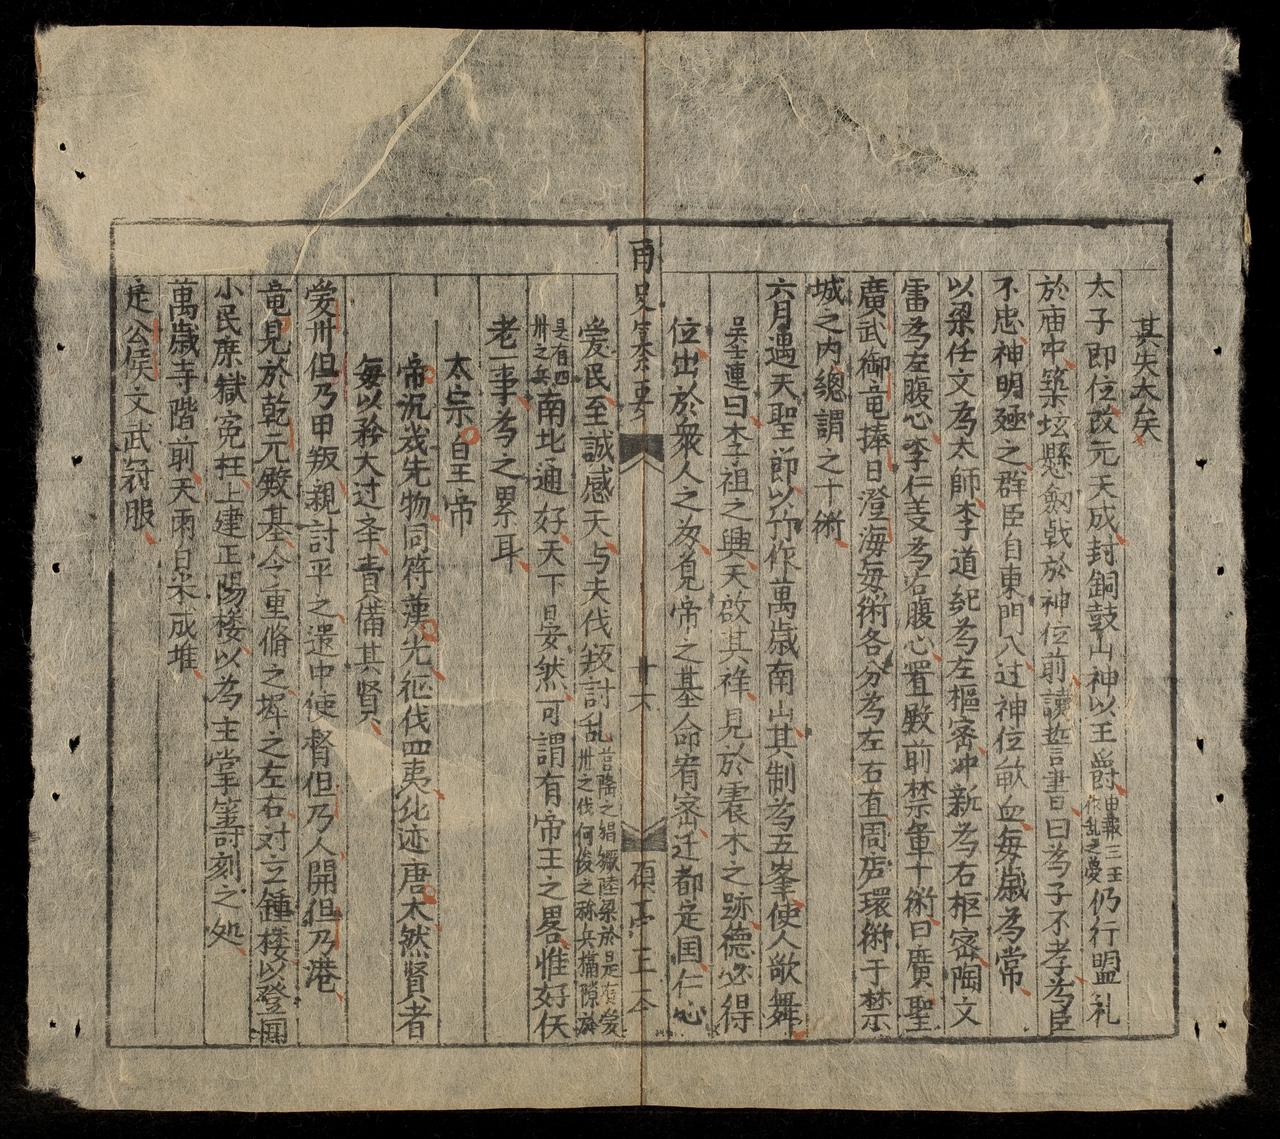 其失大矣
太子即位改元天成封銅鼓山神以王爵申報三王作乱之夢仍行盟礼
於庙中築坛懸劎戟於神位前讀誓書曰為子不孝為臣
不忠神明殛之群臣自東門入过神位歃血每歲為常
以梁任文為太師李道紀為左樞密冲新為右枢密陶文
雷為左腹心李仁義為右腹心置殿前禁軍十衛曰廣聖
廣武御竜捧日澄海每衛各分為左右直周庐環衛于禁
城之内總謂之十衛
六月遇天聖節以竹作萬歲南山其制為五峯使人歌舞
吴士連曰李祖之興天啟其祥見於霆木之跡德必得
位出於衆人之汝見帝之基命宥密迁都定囯仁心
甬史宲录要 十六 碩亭王公
爱民至誠感天与夫伐叛討乱言隆之猖獗陸梁於是有爱州之伐何俊之称兵搆隙於
是有四州之兵南北通好天下晏然可謂有帝王之畧惟好仸
老一事為之累耳
太宗皇帝
帝沉幾先物同符漢光征伐四夷比迹唐太然賢者
每以矜大过夆責備其賢
爱州但乃甲叛親討平之遣中使督但乃人開但乃港
竜見於乾元殿基今重脩之墀之左右对立鍾楼以登聞
小民庶獄冤枉上建正陽楼以為主掌籌刻之処
萬歲寺階前天雨白米成堆
定公侯文武符服